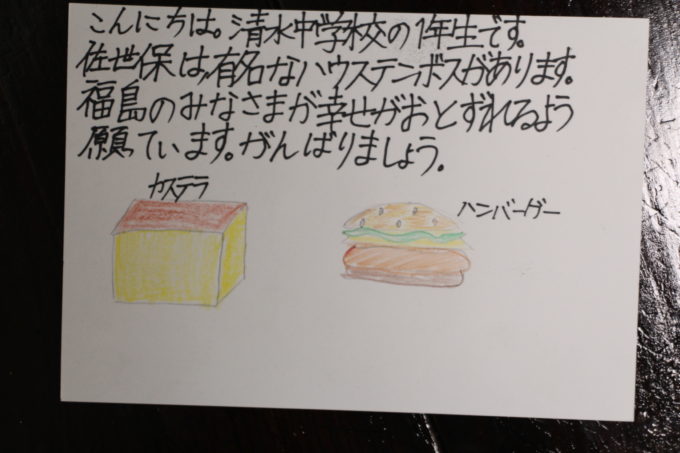 こんにちは。清水中学校の1年生です。
佐世保は、有名なハウステンボスがあります。
福島のみなさまが幸せがおとずれるよう
願ています。がんばりましょう。
カステラ
ハンバーグー